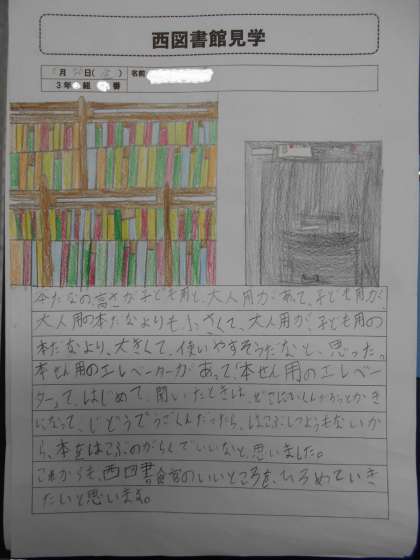 西図書館見学
月 日( )
名前
3年 組 番
本だなの、高さが子ども用と、大人用があって、子ども用が、
大人用の本だなよりも小さくて、大人用が、子ども用の
本だなより、大きくて、使いやすそうだなと、思った。
本せん用のエレベーターがあって、本せん用のエレベー
ターって、はじめて、聞いたときは、どこに
になって、じどうで だったら、はこぶしつようもないか
ら、本をはこぶのがらくでいいなと、思いました。
これからも、西図書館のいいところを、ひろめていき
たいと思います。